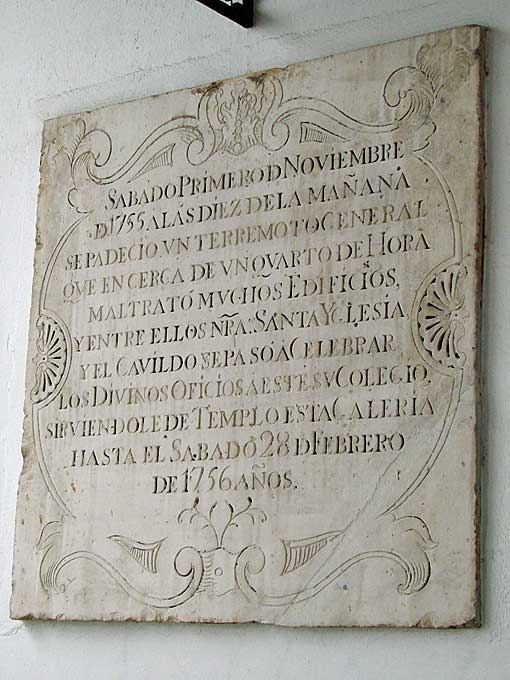 SABADO PRIMERO D NOVIEMBRE
D 1755 A LAS DIEZ DE LA MAÑANA
SE PADECIO VN TERREMOTO GENERAL
QUE EN CERCA DE VN QVARTO DE HORA
MALTRATO MVCHOS EDIFICIOS,
Y ENTRE ELLOS NRA. SANTA YGLESIA
Y EL CAVILDO SE PASO A CELEBRAR
LOS DIVINOS OFICIOS A ESTE SV COLEGIO,
SIRVIENDOLE DE TEMPLO ESTA GALERIA
HASTA EL SABADO 28 D FEBRERO
DE 1756 AÑOS.